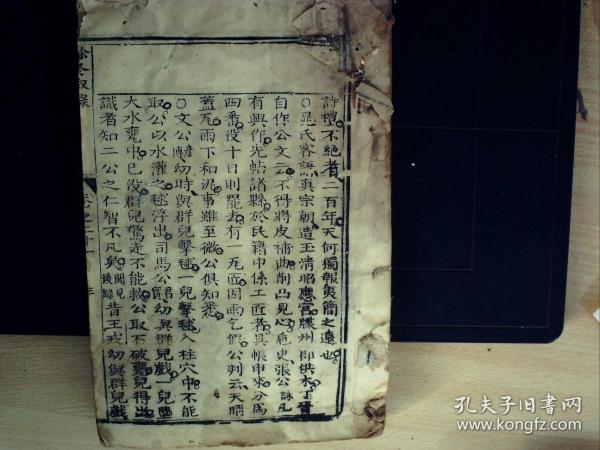 詩禮不絕者二百年天何獨報夷簡之遠也
○晁氏客語真宗朝造玉清昭應宮牒州郡供木
自作公文云不得將皮補曲削凸見心危吏張公詠凡
有興作先帖諸縣於民籍中係工匠者具帳申來分為
四番役十日則罷去有一瓦匠因雨乞假公判云天晴
蓋瓦雨下和泥事雖至微公俱知悉
○文公彥幼時與群兒擊毬一兒擊毬入柱穴中不能
取公以水灌之毬浮出司馬公幼與群兒戲一兒墮
大水甕中已沒群兒驚走不能救公取石破甕兒得出
識者知二公之仁智不凡矣聞見後錄昔王戎幼與群兒戲
餘冬敘錄
卷之二十
孔夫子旧书网
www.kongfz.com